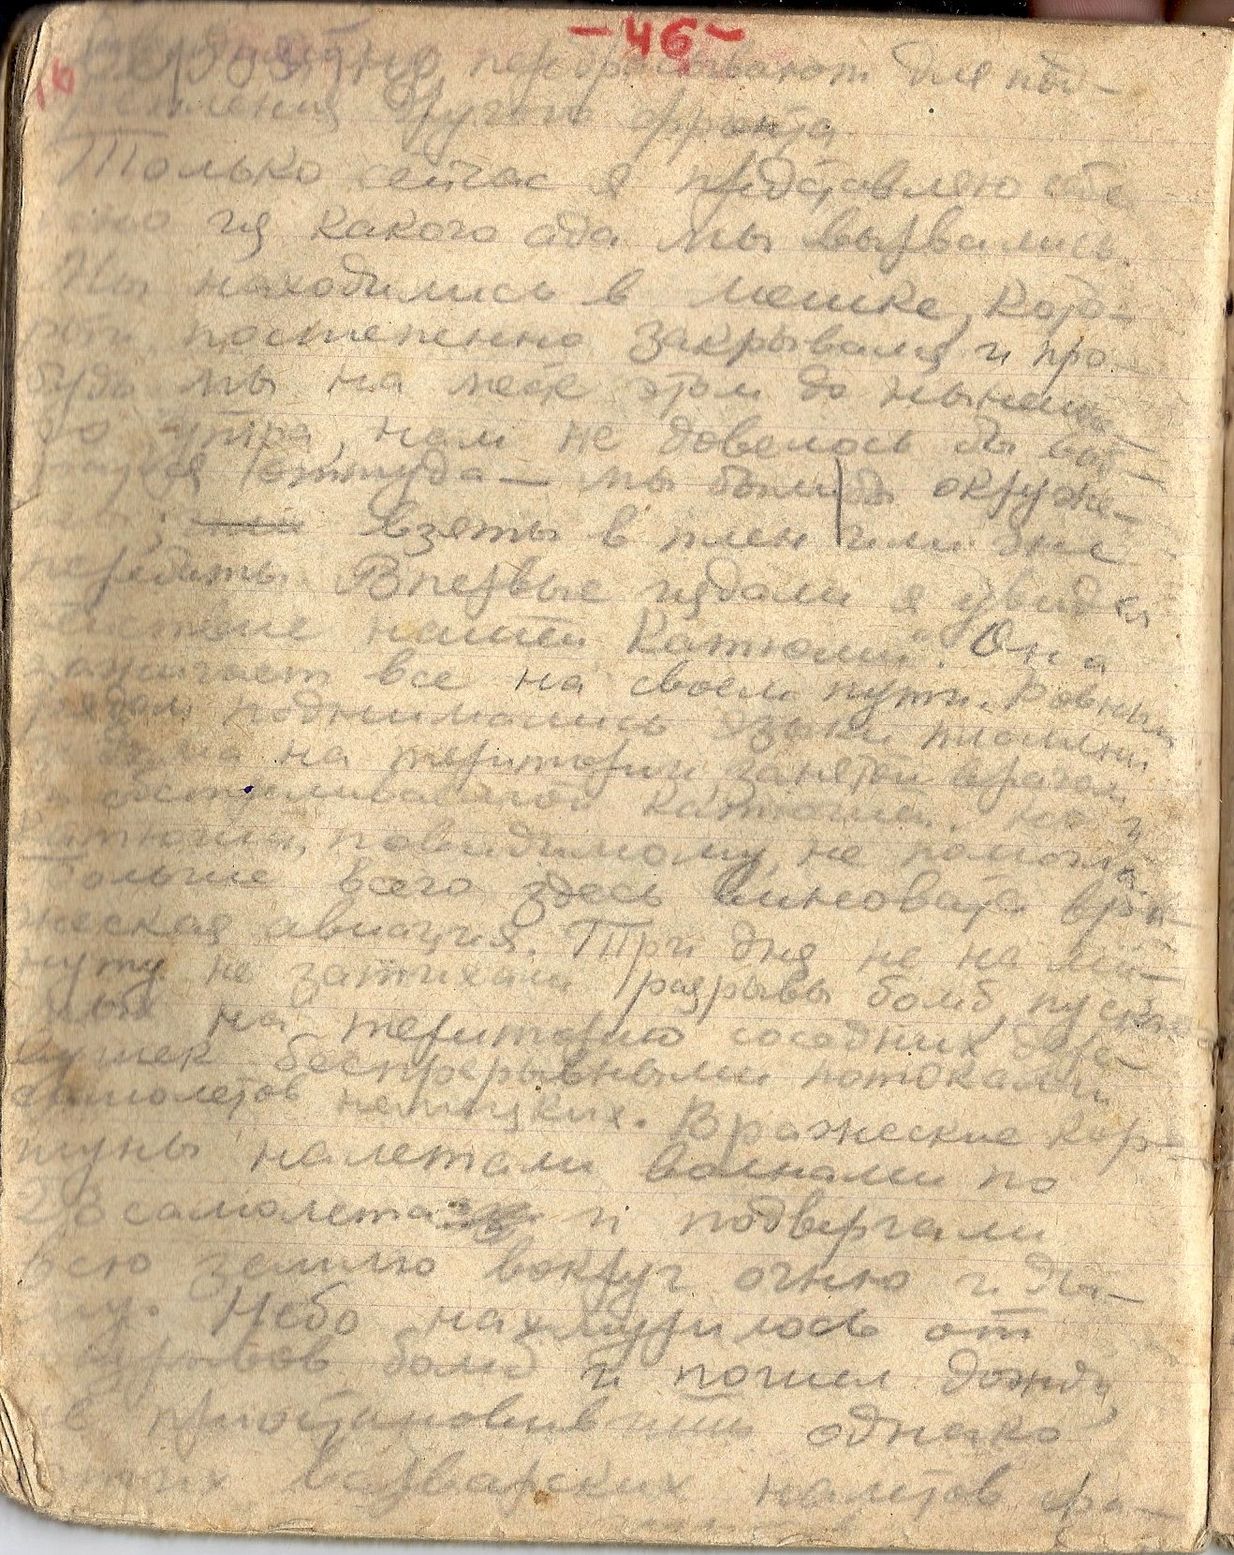 -46-
Вероятно, перебрасывают для под-
крепления другого фронта
Только сейчас я представляю себе
ясно из какого ада мы вырвались.
Мы находились в мешке, кото-
рый постепенно закрывался и про
будь мы на месте этом до нынешне
го утра, нам не довелось бы выб-
раться оттуда — мы были бы окруже-
ны, взяты в плен или все
перебиты. Впервые издали я увидел
действие нашей "Катюши". Она
зажигает все на своем пути. Ровным
рядом поднимались языки пламени
и дыма на територии занятой врагом
и обстреливаемой катюшей. Но и
катюша, повидимому, не помогла.
Больше всего здесь виновата вра-
жеская авиация. Три дня не на ми-
нуту не затихали разрывы бомб,
на територию соседних дере
вушек беспрерывными потоками
самолетов немецких. Вражеские кор-
шуны налетали волнами по
23 самолета и подвергали
всю землю вокруг огню и ды-
му. Небо нахмурилось от
взрывов бомб и пошел дождь,
не приостановивший однако
этих варварских налетов фа-